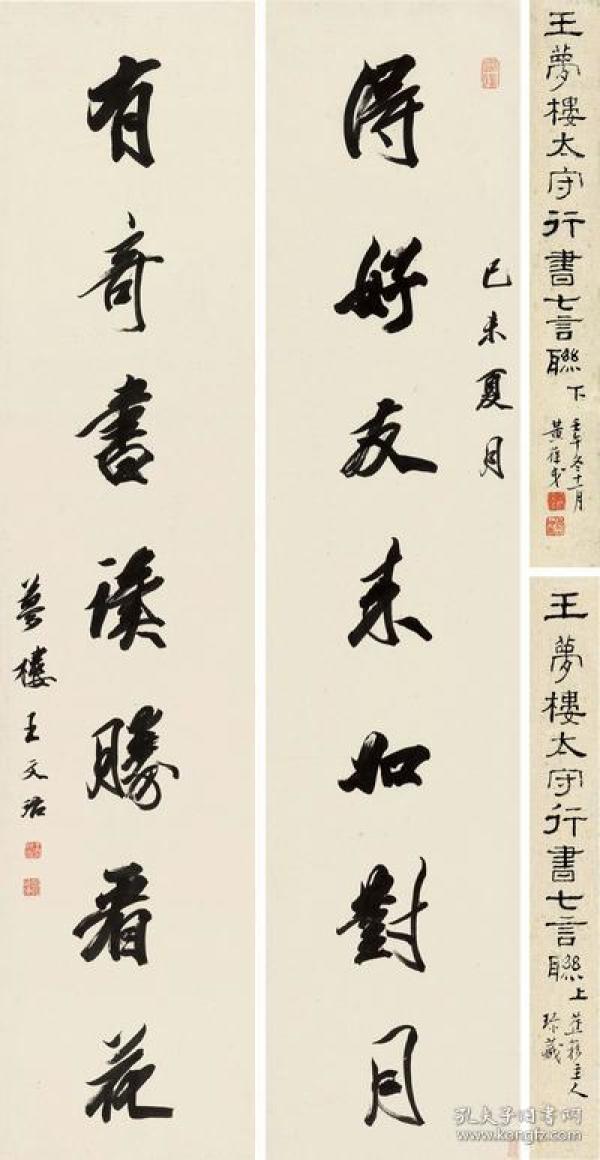 得好友来如對月
己未夏月
有奇書讀勝看花
夢樓王文治
王夢樓太守行書七言聯下
壬午冬十一月
王夢樓太守行書七言聯上
主人
珍藏
孔夫子旧书网
www.kongfz.com